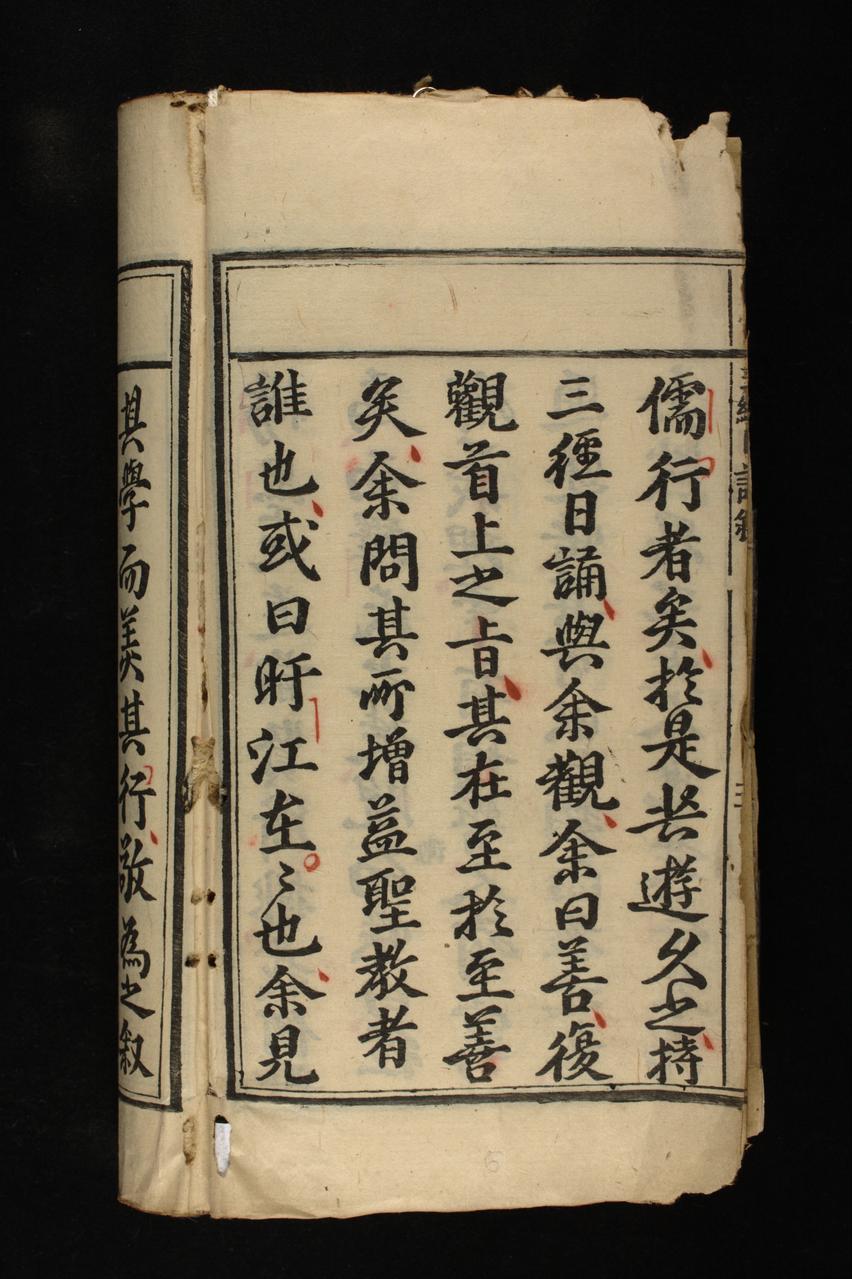 儒行者矣於是共遊久之持
三徑日誦與余觀余曰善復
觀首上之旨其在至於至善
矣余問其所增益聖教者
誰也或曰盱江左〻也余見
其學而美其行敬為之叙